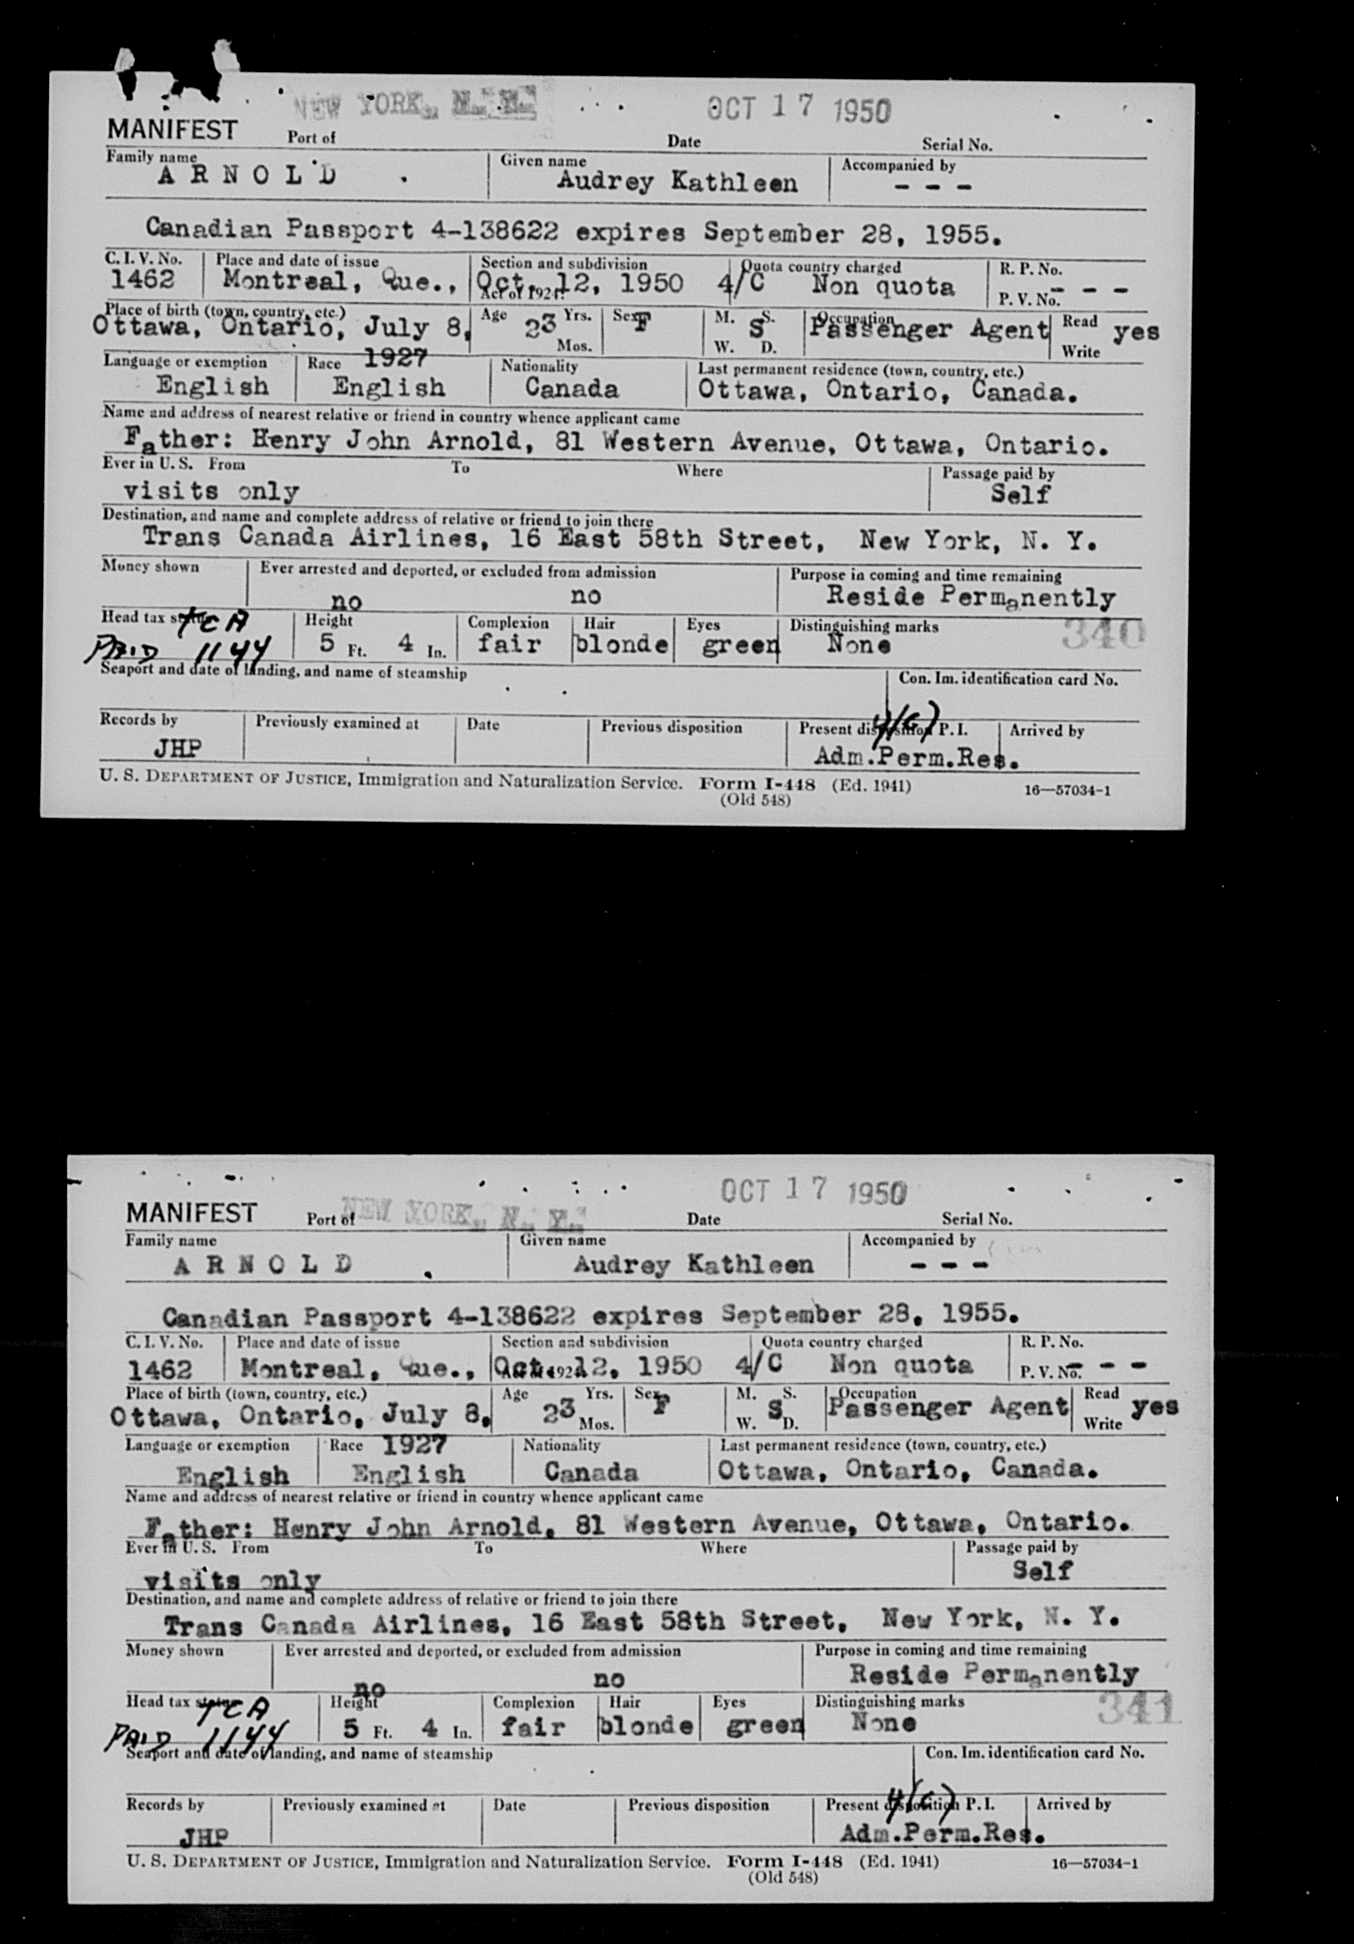 NEW YORK, N. Y. OCT 17 1950
MANIFEST Port of Date Serial No.
Family name Given name Accompanied by
ARNOLD Audrey Kathleen - - -
Canadian Passport 4-138622 expires September 28, 1955.
C. I. V. No. Place and date of issue Section and subdivision Quota country charged R. P. No.
1462 Montreal, Que., Oct. 12, 1950 4/C Non quota - - -
Act of 1924: P. V. No.
Place of birth (town, country, etc.) Age Yrs. Sex M. S. Occupation Read
Ottawa, Ontario, July 8, 23 F S Passenger Agent yes
Mos. W. D. Write
Language or exemption Race 1927 Nationality Last permanent residence (town, country, etc.)
English English Canada Ottawa, Ontario, Canada.
Name and address of nearest relative or friend in country whence applicant came
Father: Henry John Arnold, 81 Western Avenue, Ottawa, Ontario.
Ever in U. S. From To Where Passage paid by
visits only Self
Destination, and name and complete address of relative or friend to join there
Trans Canada Airlines, 16 East 58th Street, New York, N. Y.
Money shown Ever arrested and deported, or excluded from admission Purpose in coming and time remaining
no no Reside Permanently
Head tax status TCA Height Complexion Hair Eyes Distinguishing marks 340
PAID 1144 5 Ft. 4 In. fair blonde green None
Seaport and date of landing, and name of steamship Con. Im. identification card No.
4(c)
Records by Previously examined at Date Previous disposition Present disposition P. I. Arrived by
JHP Adm.Perm.Res.
U. S. DEPARTMENT OF JUSTICE, Immigration and Naturalization Service. Form I-448 (Ed. 1941) 16—57034-1
(Old 548)
OCT 17 1950
NEW YORK, N. Y.
MANIFEST Port of Date Serial No.
Family name Given name Accompanied by
ARNOLD Audrey Kathleen - - -
Canadian Passport 4-138622 expires September 28, 1955.
C. I. V. No. Place and date of issue Section and subdivision Quota country charged R. P. No.
1462 Montreal, Que., Oct. 12, 1950 4/C Non quota - - -
P. V. No.
Place of birth (town, country, etc.) Age Yrs. Sex M. S. Occupation Read
Ottawa, Ontario, July 8, 23 F S Passenger Agent yes
Mos. W. D. Write
Language or exemption Race 1927 Nationality Last permanent residence (town, country, etc.)
English English Canada Ottawa, Ontario, Canada.
Name and address of nearest relative or friend in country whence applicant came
Father: Henry John Arnold, 81 Western Avenue, Ottawa, Ontario.
Ever in U. S. From To Where Passage paid by
visits only Self
Destination, and name and complete address of relative or friend to join there
Trans Canada Airlines, 16 East 58th Street, New York, N. Y.
Money shown Ever arrested and deported, or excluded from admission Purpose in coming and time remaining
no no Reside Permanently
Head tax status TCA Height Complexion Hair Eyes Distinguishing marks 341
PAID 1144 5 Ft. 4 In. fair blonde green None
Seaport and date of landing, and name of steamship Con. Im. identification card No.
4(c)
Records by Previously examined at Date Previous disposition Present disposition P. I. Arrived by
JHP Adm.Perm.Res.
U. S. DEPARTMENT OF JUSTICE, Immigration and Naturalization Service. Form I-448 (Ed. 1941) 16—57034-1
(Old 548)